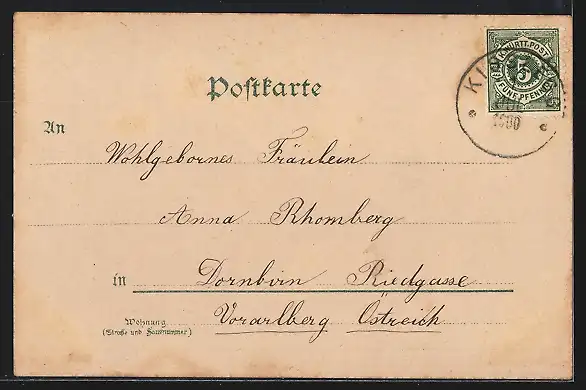 K. WÜRTT. POST
5
FÜNF PFENNIG
1900
Postkarte
An
Wohlgebornes Fräulein
Anna Rhomberg
in Dornbirn Riedgasse
Wohnung
(Straße und Hausnummer)
Vorarlberg Östreich